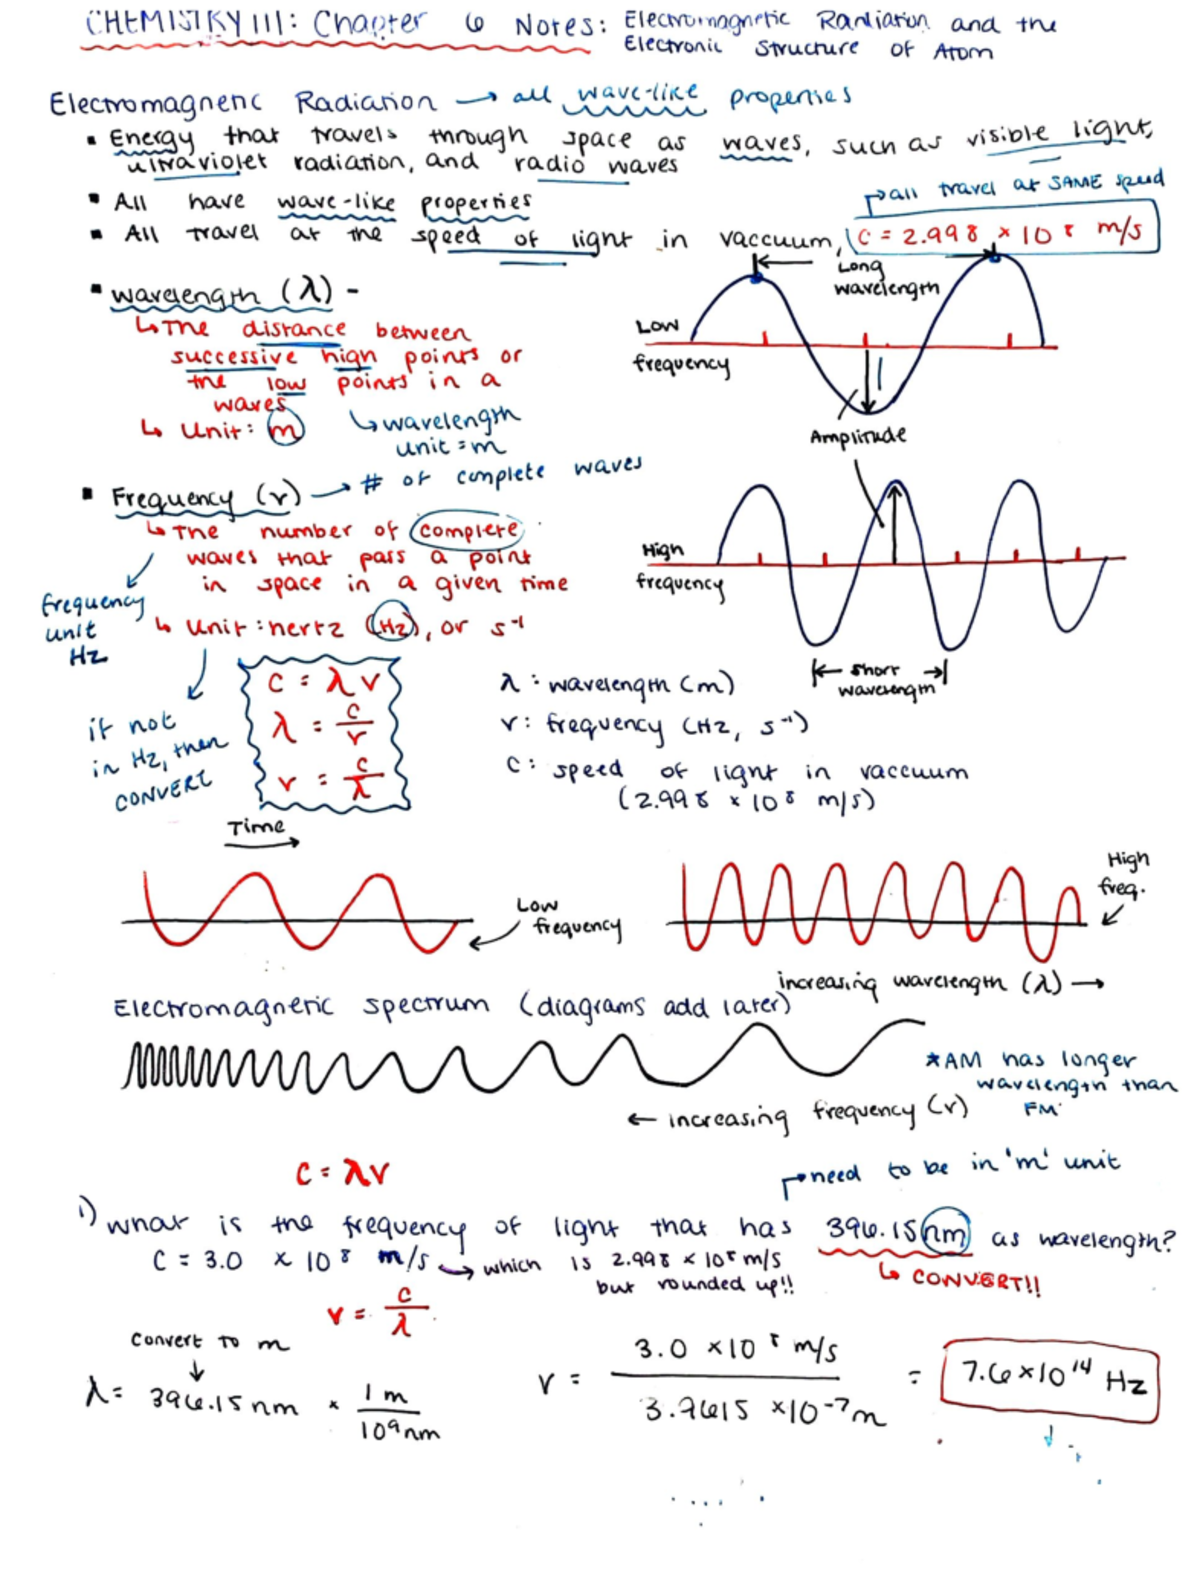 CHEMISTRY 111: Chapter 6 Notes: Electromagnetic Radiation and the
Electronic Structure of Atom
Electromagnetic Radiation → all wave-like properties
▪ Energy that travels through space as waves, such as visible light,
ultraviolet radiation, and radio waves
▪ All have wave-like properties
→ all travel at SAME speed
▪ All travel at the speed of light in vaccuum, C = 2.998 × 10⁸ m/s
Long
wavelength
▪ wavelength (λ) -
↳ The distance between
successive high points or
the low points in a
waves
↳ Unit: m
↳ wavelength
unit = m
Low
frequency
Amplitude
▪ Frequency (ν) → # of complete waves
↳ The number of complete
waves that pass a point
in space in a given time
↳ Unit: hertz (Hz), or s⁻¹
frequency
unit
Hz
High
frequency
← short →
wavelength
if not
in Hz, then
CONVERT
C = λν
λ = c/ν
ν = c/λ
λ: wavelength (m)
ν: frequency (Hz, s⁻¹)
C: speed of light in vaccuum
(2.998 × 10⁸ m/s)
Time →
Low
frequency
High
freq.
increasing wavelength (λ) →
Electromagnetic spectrum (diagrams add later)
*AM has longer
wavelength than
FM
← increasing frequency (ν)
C = λν
→ need to be in 'm' unit
1) What is the frequency of light that has 396.15 nm as wavelength?
C = 3.0 × 10⁸ m/s → which is 2.998 × 10⁸ m/s
but rounded up!!
↳ CONVERT!!
ν = c/λ
convert to m
↓
λ = 396.15 nm × 1 m / 10⁹ nm
ν = 3.0 × 10⁸ m/s / 3.9615 × 10⁻⁷ m = 7.6 × 10¹⁴ Hz